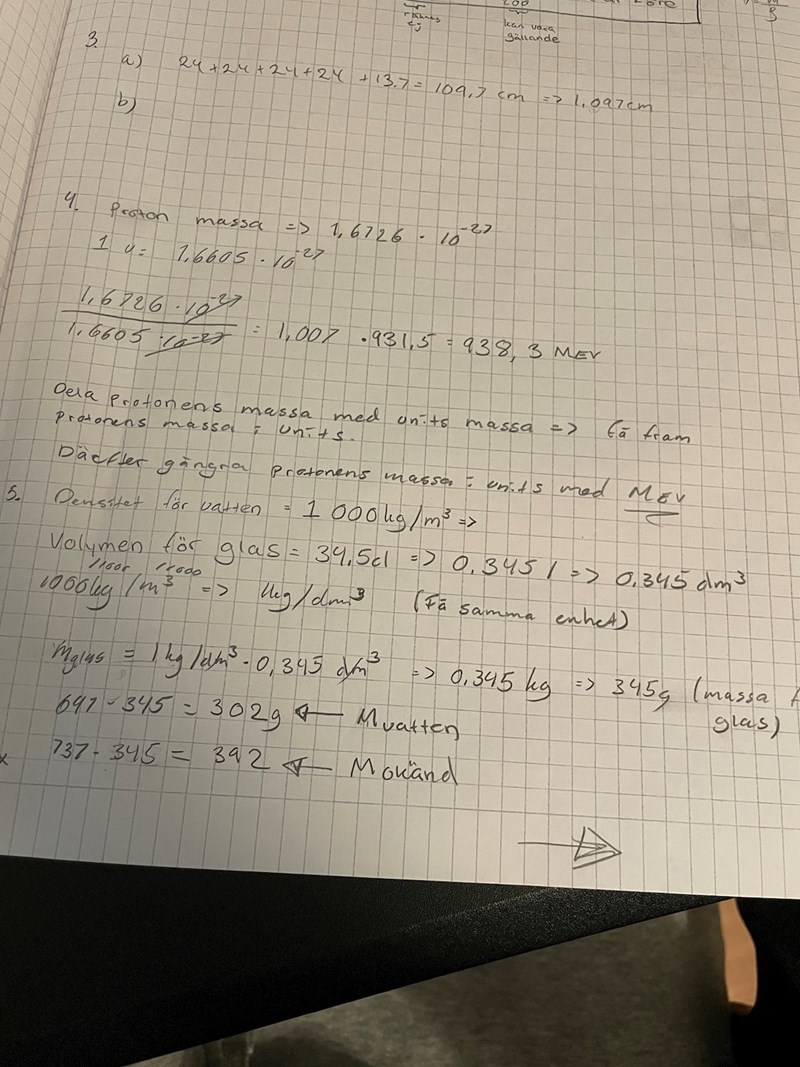 kan vara
gällande
3.
a) 24+24+24+24 +13.7 = 109,7 cm => 1,097cm
b)
4. Proton massa => 1,6726 · 10^-27
1 u = 1,6605 · 10^-27
1,6726 · 10^-27 / 1,6605 · 10^-27 = 1,007 · 931,5 = 938,3 MEV
Dela protonens massa med units massa => Få fram
protonens massa i units.
Därefter gångra protonens massa i units med MEV
5. Densitet för vatten = 1 000kg/m³ =>
Volymen för glas = 34,5cl => 0,345 l => 0,345 dm³
/1000 /1000
1000kg/m³ => 1kg/dm³ (Få samma enhet)
mglas = 1kg/dm³ · 0,345 dm³ => 0,345 kg => 345g (massa f
glas)
647 - 345 = 302g ← Mvatten
737 - 345 = 392 ← Mokänd